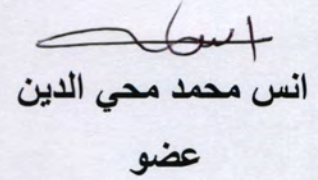 انس محمد محي الدين
عضو